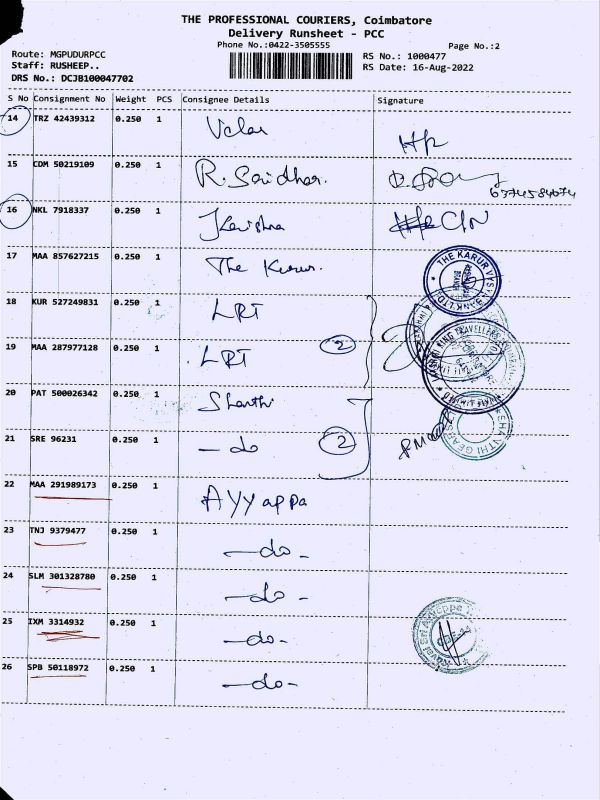 THE PROFESSIONAL COURIERS, Coimbatore
Delivery Runsheet - PCC
Phone No.:0422-3505555 Page No.:2
Route: MGPUDURPCC RS No.: 1000477
Staff: RUSHEEP.. RS Date: 16-Aug-2022
DRS No.: DCJB100047702
S No Consignment No Weight PCS Consignee Details Signature
14 TRZ 42439312 0.250 1
15 COM 50219109 0.250 1 R. Sridhar. 6374584674
16 NKL 7918337 0.250 1 Krishna
17 MAA 857627215 0.250 1 The Karur.
THE KARUR VYSYA BANK LTD.
18 KUR 527249831 0.250 1 LRT
19 MAA 287977128 0.250 1 LRT 2
20 PAT 500026342 0.250 1 Shanthi
SHANTHI GEARS
21 SRE 96231 0.250 1 - do 2
22 MAA 291989173 0.250 1 Ayyappa
23 TNJ 9379477 0.250 1 - do -
24 SLM 301328780 0.250 1 - do -
25 IXM 3314932 0.250 1 - do -
26 SPB 50118972 0.250 1 - do -